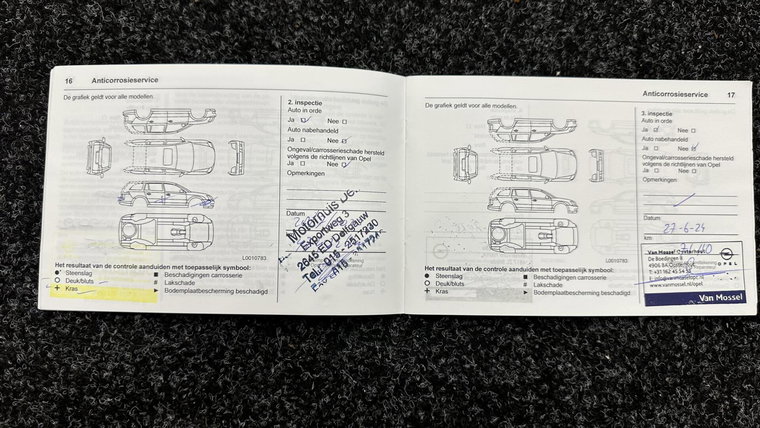 16 Anticorrosieservice
De grafiek geldt voor alle modellen.
2. inspectie
Auto in orde
Ja Nee
Auto nabehandeld
Ja Nee
Ongeval/carrosserieschade hersteld
volgens de richtlijnen van Opel
Ja Nee
Opmerkingen
Datum
Motorhuis De
Exportweg 3
2645 ED Delfgauw
L0010783
Het resultaat van de controle aanduiden met toepasselijk symbool:
Steenslag Beschadigingen carrosserie
Deuk/bluts # Lakschade
+ Kras Bodemplaatbescherming beschadigd
Anticorrosieservice 17
De grafiek geldt voor alle modellen.
3. inspectie
Auto in orde
Ja Nee
Auto nabehandeld
Ja Nee
Ongeval/carrosserieschade hersteld
volgens de richtlijnen van Opel
Ja Nee
Opmerkingen
Datum
27-6-24
km
L0010783
Van Mossel
De Boedingen 8
OPEL
www.vanmossel.nl/opel
Van Mossel
Het resultaat van de controle aanduiden met toepasselijk symbool:
Steenslag Beschadigingen carrosserie
Deuk/bluts # Lakschade
+ Kras Bodemplaatbescherming beschadigd